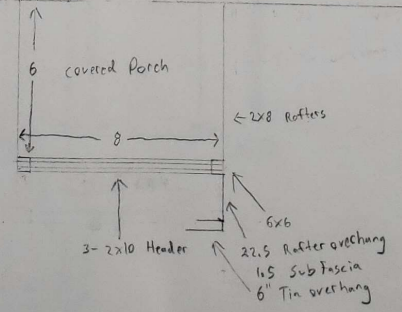 6
covered Porch
← 2x8 Rafters
8
6x6
3- 2x10 Header
22.5 Rafter overhang
1.5 Sub Fascia
6" Tin overhang